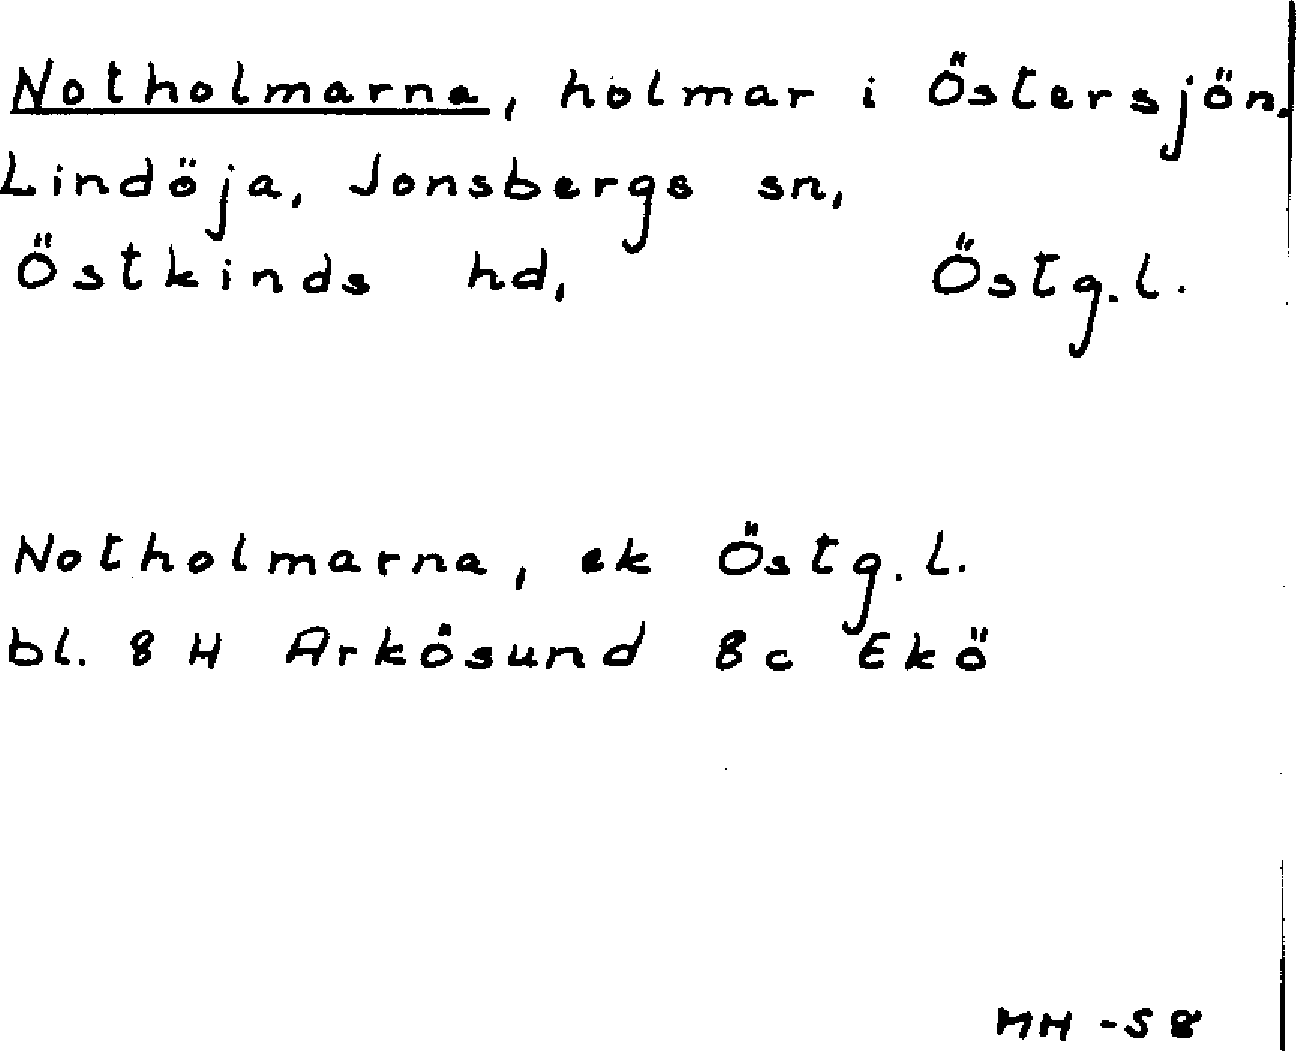 Notholmarna, holmar i Östersjön.
Lindöja, Jonsbergs sn,
Östkinds hd, Östg.l.
Notholmarna, ek Östg.l.
bl. 8 H Arkösund 8c Ekö
MH -58